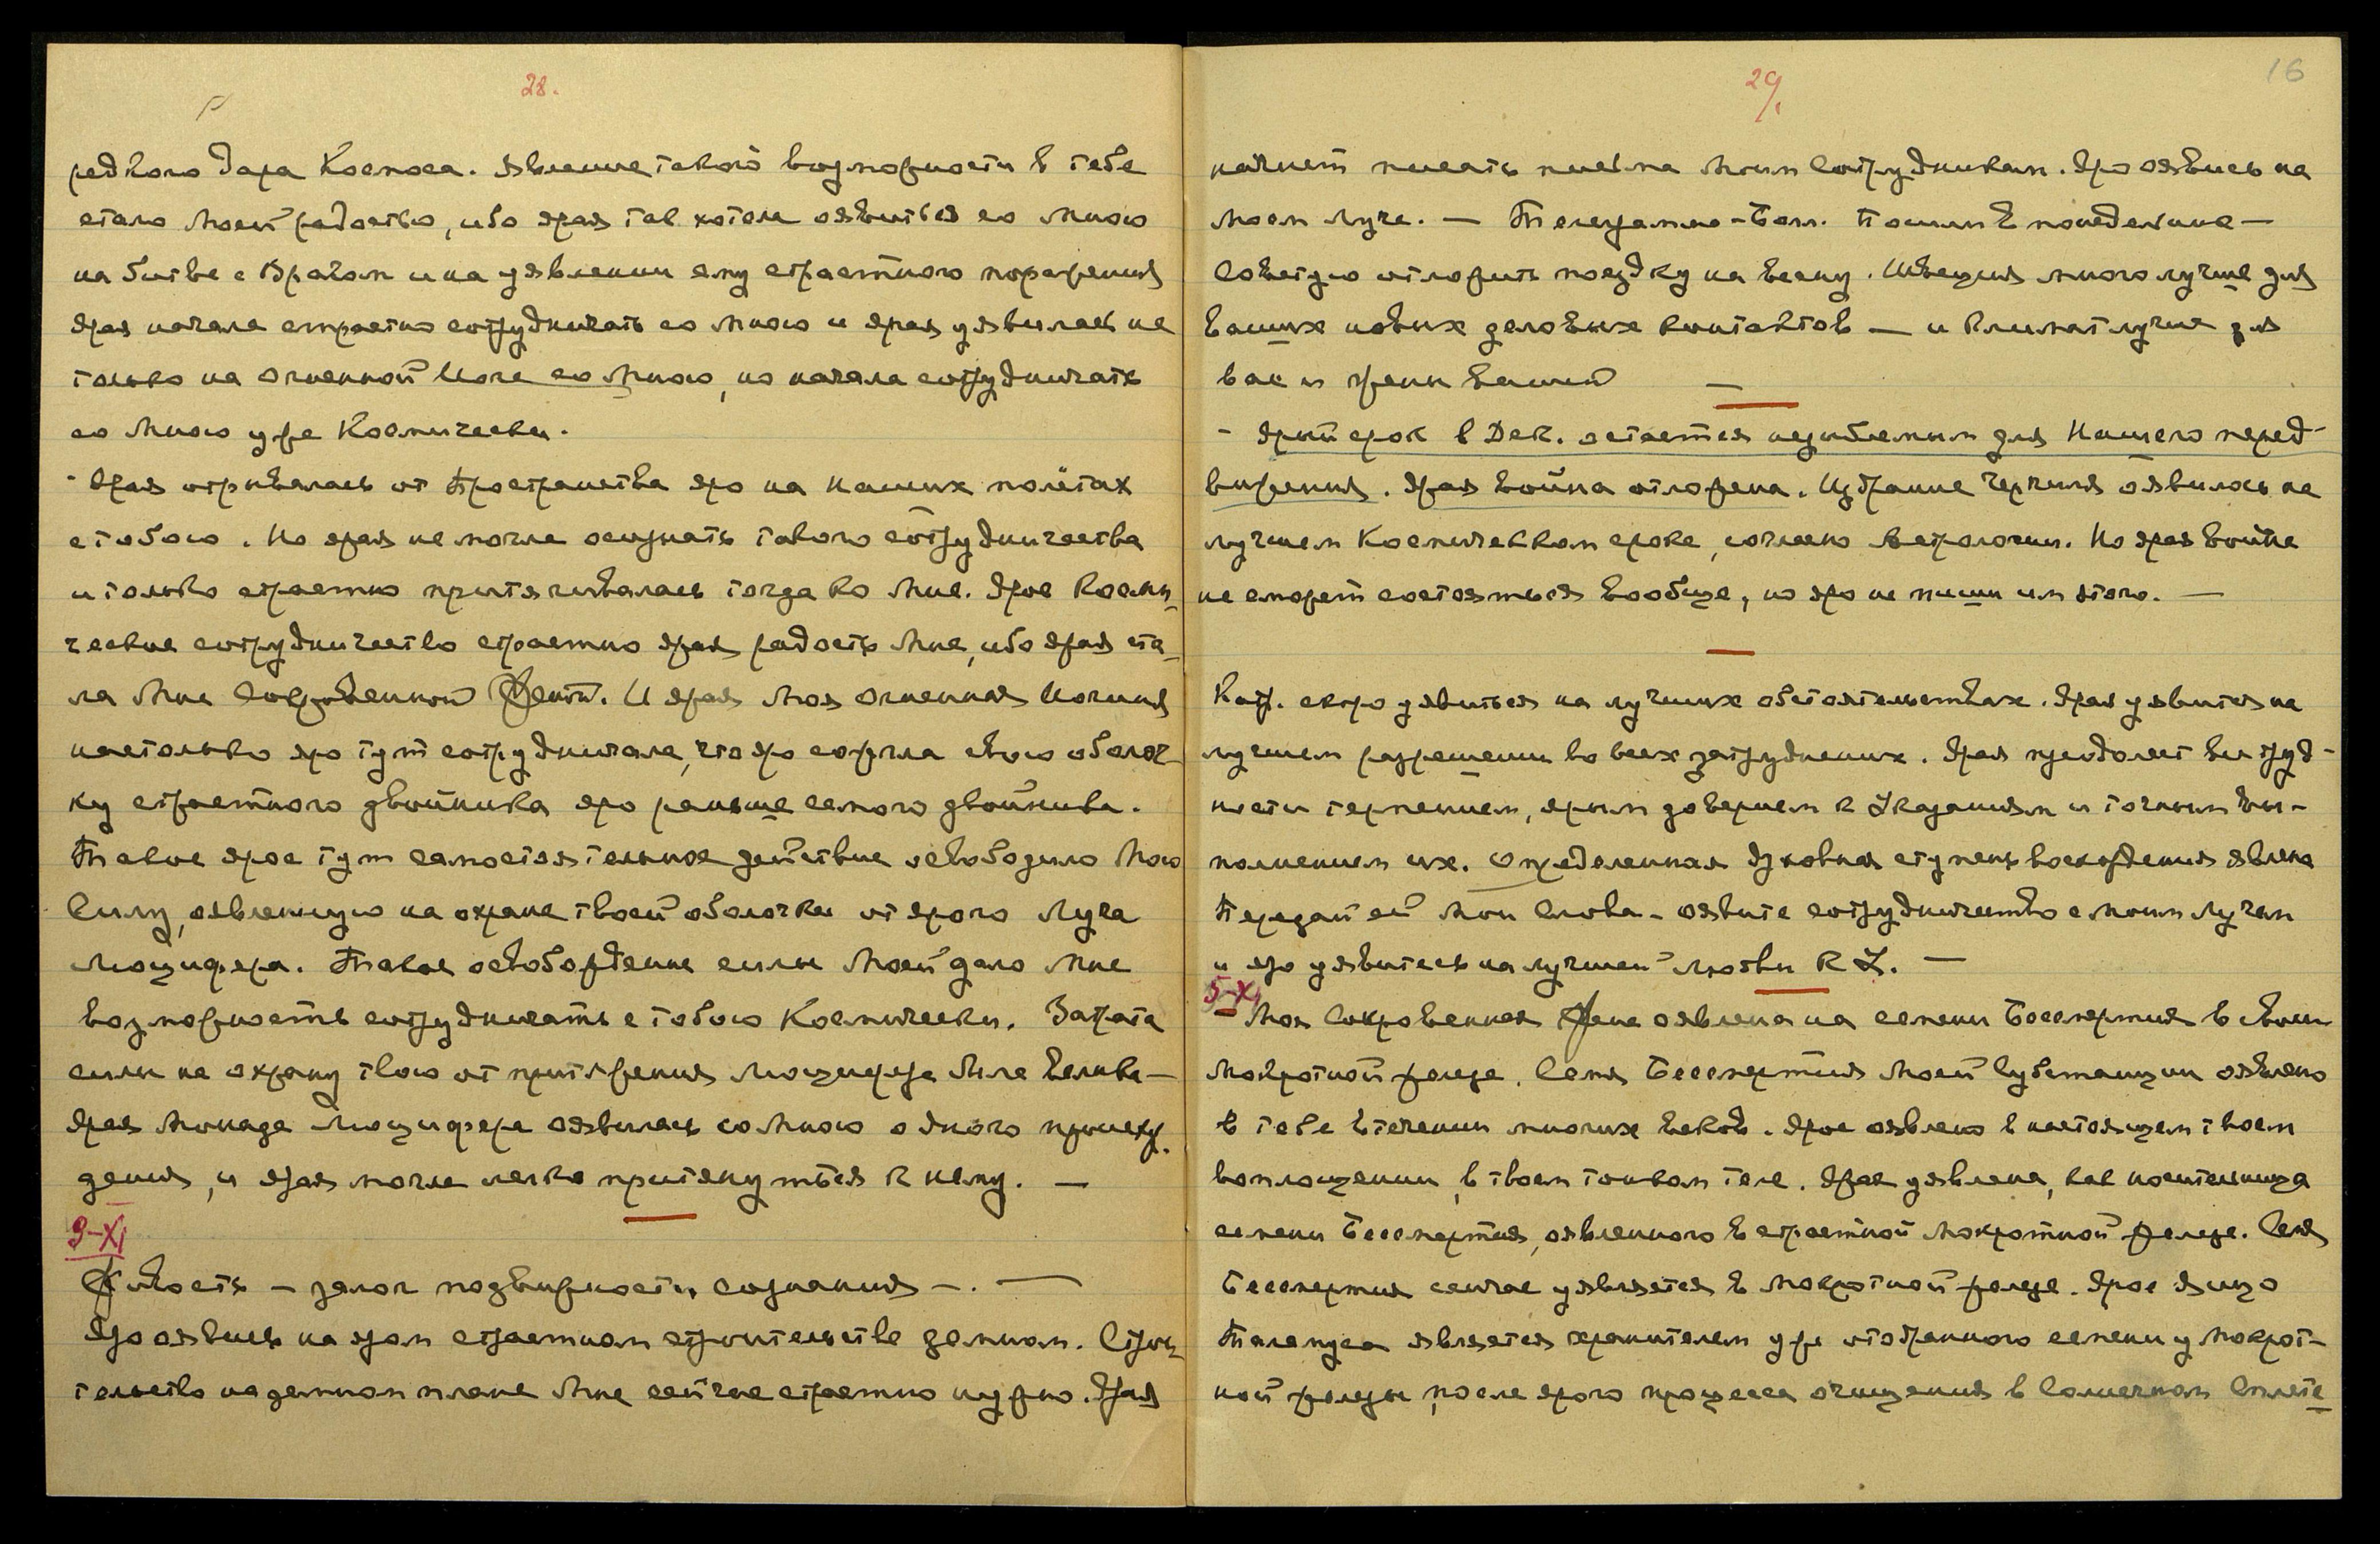 28.
редкого дара Космоса. Явление такой возможности в тебе
стало Моей радостью, ибо ярая так хотела оявиться со Мною
на битве с Врагом и на уявлении ему страстного поражения
Ярая начала страстно сотрудничать со Мною и ярая уявилась не
только на Огненной Йоге со Мною, но начала сотрудничать
со Мною уже Космически.
- Ярая отрывалась от Пространства яро на наших полётах
с тобою. Но ярая не могла осознать такого сотрудничества
и только страстно притягивалась тогда ко Мне. Ярое Косми-
ческое сотрудничество страстно ярая радость Мне, ибо ярая ста-
ла Мне Сокровенной Женой. И ярая Моя Огненная Йогиня
настолько яро тут сотрудничала, что яро сожгла свою оболоч-
ку страстного двойника яро раньше самого двойника.
Такое ярое тут самостоятельное действие освободило Мою
Силу, оявленную на охране твоей оболочки от ярого Луча
Люцифера. Такое освобождение силы Моей дало Мне
возможность сотрудничать с тобою Космически. Затрата
силы на охрану твою от притяжения Люцифера была велика —
Ярая Монада Люцифера оявилась со Мною одного происхож-
дения, и ярая могла легко притянуться к нему. —
9-XI
Живость — залог подвижности сознания —. —
Яро оявись на яром страстном строительстве земном. Строи-
тельство на земном плане Мне сейчас страстно нужно. Ярая
29.
16
начнет писать письма Моим Сотрудникам. Яро оявись на
Моем Луче. — Телеграмма - Бол. Пошли в понедельник —
Советую отложить поездку на весну. Швеция много лучше для
Ваших новых деловых контактов — и климат лучше для
вас и жены Вашей —
- Ярый срок в Дек. остается незыблемым для Нашего перед-
вижения. Ярая Война отложена. Избрание Черчиля оявилось на
лучшем Космическом сроке, согласно Астрологии. Но ярая Война
не сможет состояться вообще, но яро не пиши им этого. —
Кат. скоро уявиться на лучших обстоятельствах. Ярая уявится на
лучшем разрешении во всех затруднениях. Ярая преодолеет все труд-
ности терпением, ярым доверием к Указаниям и точным вы-
полнением их. Определенная духовная ступень восхождения явлена
Передай ей Мои Слова - оявите сотрудничество с Моим Лучом
и яро уявитесь на лучшей любви к У. —
5-XI
- Моя Сокровенная Жена оявлена на семени Бессмертия в своей
Мокротной железе. Семя Бессмертия Моей Субстанции оявлено
в тебе в течении многих веков. Ярое оявлено в настоящем твоем
воплощении, в твоем тонком теле. Ярая уявлена, как носительница
семени Бессмертия, оявленного в страстной Мокротной железе. Семя
Бессмертия сейчас уявляется в Мокротной железе. Ярое яйцо
Таламуса является хранителем уже отобранного семени у Мокрот-
ной железы, после ярого процесса очищения в Солнечном Сплете-